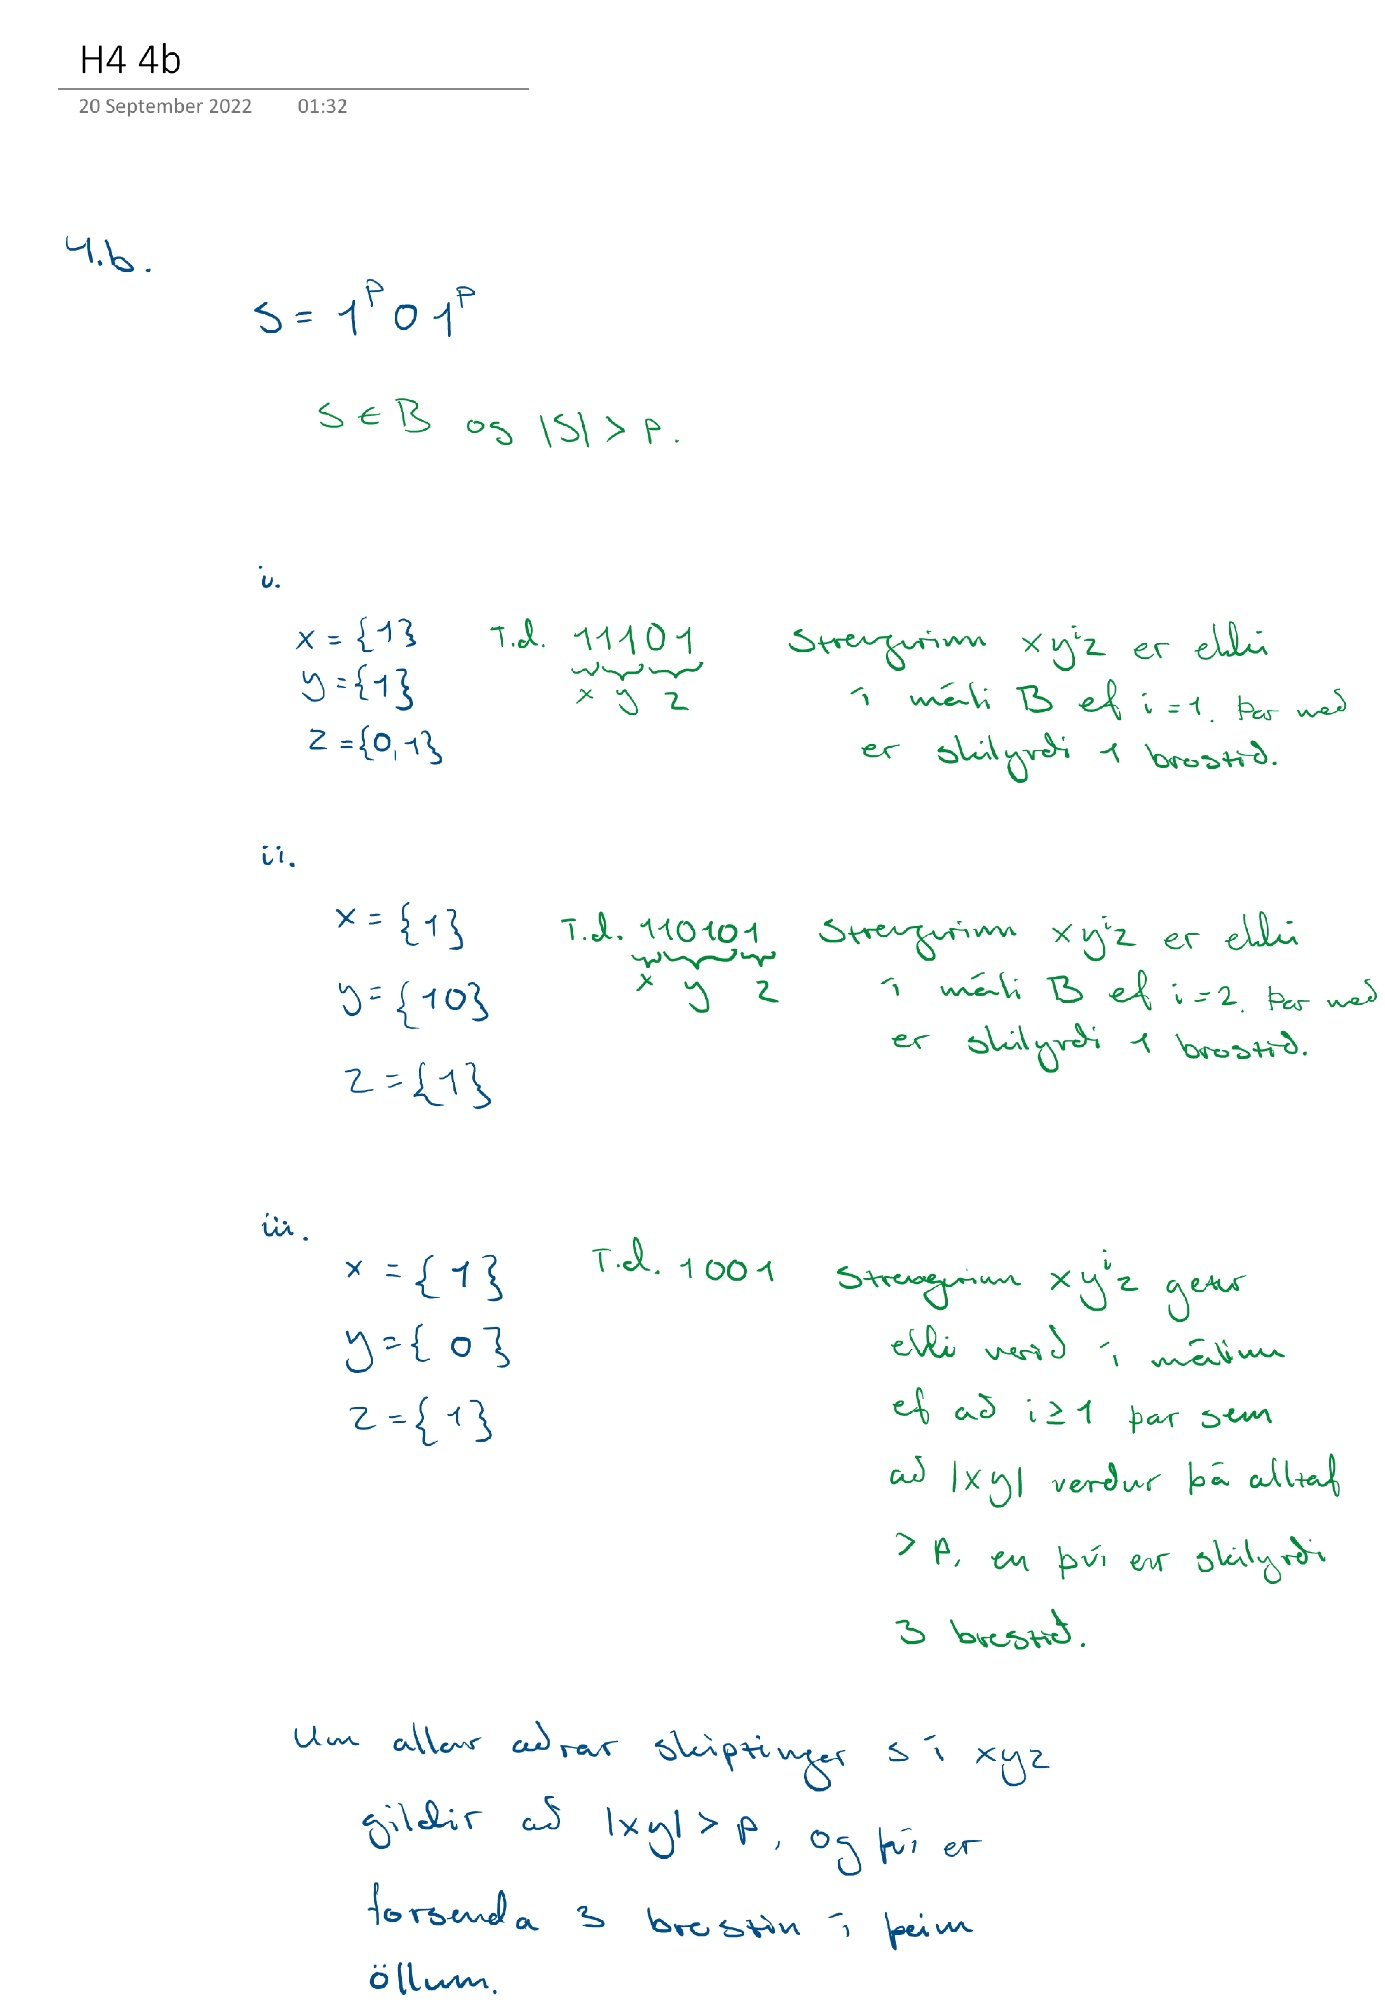 H4 4b
20 September 2022 01:32
4.b.
S = 1^P 0 1^P
S ∈ B og |S| > P.
i.
x = {1} T.d. 11101 Strengurinn xy^iz er ekki
y = {1} x y z í máli B ef i = 1. Þar með
z = {0,1} er skilyrði 1 brostið.
ii.
x = {1} T.d. 110101 Strengurinn xy^iz er ekki
y = {10} x y z í máli B ef i = 2. Þar með
z = {1} er skilyrði 1 brostið.
iii.
x = {1} T.d. 1001 Strengurinn xy^iz getur
y = {0} ekki verið í málinu
z = {1} ef að i ≥ 1 þar sem
að |xy| verður þá alltaf
> P, en því er skilyrði
3 brestið.
Um allar aðrar skiptingar s í xyz
gildir að |xy| > P, og því er
forsenda 3 brostin í þeim
öllum.